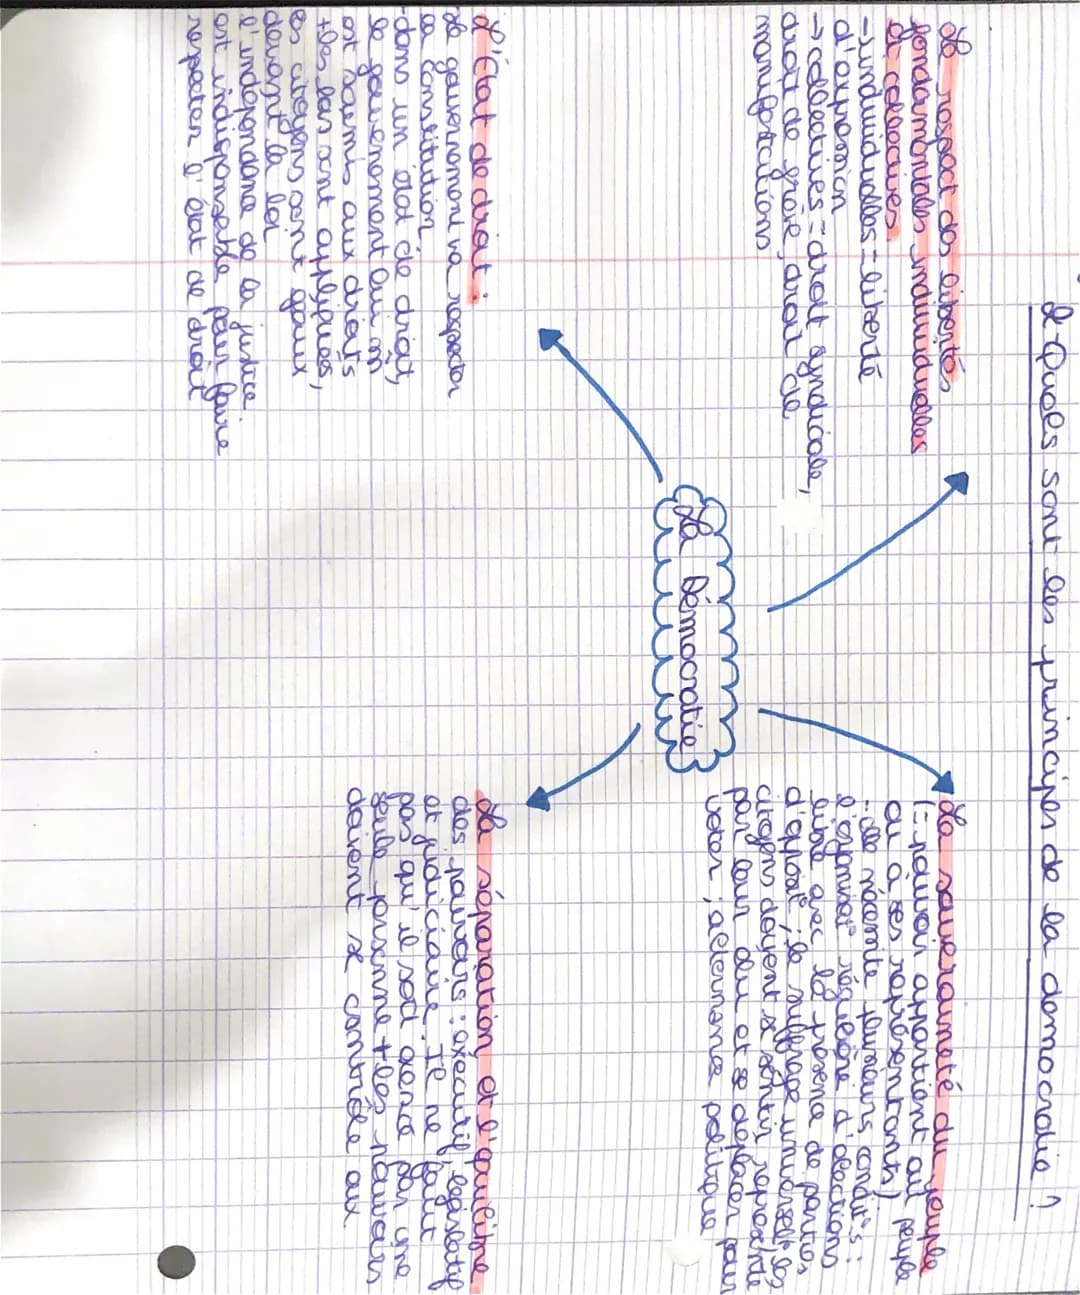 2-Quels sont les principes de la democratie ?
Le respect des libertés
fondamentales individuelles
et collectives.
→ individuelles = liberté
d'expression
→ collectives = droit syndicale,
droit de grève, droit de
manifestations
La souveraineté du peuple
(= pouvoir appartient au peuple
ou à ses représentants)
- elle nécessite plusieurs condit°s :
l'organisat° régulière d'élections
libre avec la présence de parties
d'opposit°, le suffrage universelle, les
citoyens doivent se sentir représenté
par leur élu et se déplacer pour
voter, alternance politique
La Démocratie
L'État de droit :
Le gouvernement va respecter
la constitution
- dans un état de droit,
le gouvernement lui m
est soumis aux droits
+ les lois sont appliquées,
les citoyens sont égaux
devant la loi
l'indépendance de la justice
est indispensable pour faire
respecter l'état de droit
La séparation et l'équilibre
des pouvoirs : executif, législatif
et judiciaire. Il ne faut
pas qu'il soit exercé par une
seule personne + les pouvoirs
doivent se contrôle aux